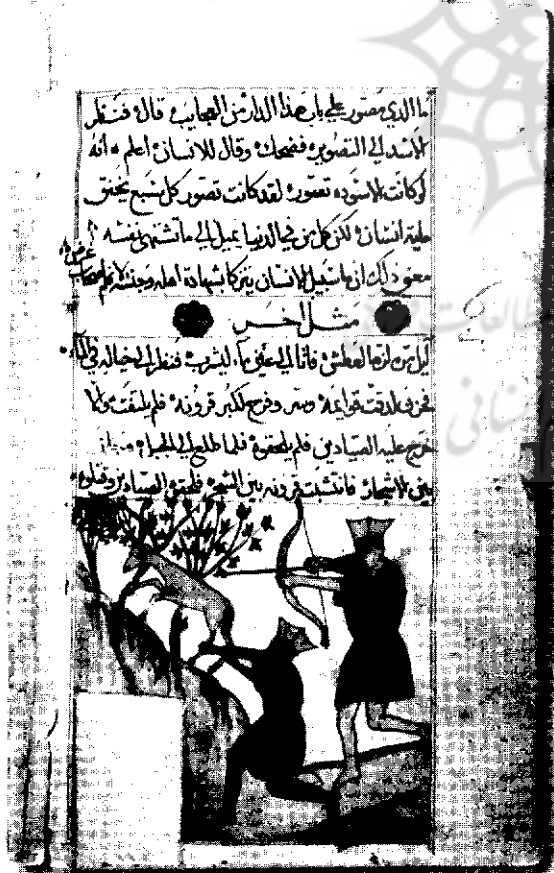 ما الذي مصور على باب هذا الدار من العجايب قال فنظر
الاسد الى التصوير فضحك وقال للانسان اعلم انه
لو كانت الاسوده تصور لقد كانت تصور كل سبع يخنق
مايه انسان لكن كل من في الدنيا يميل الى ما تشتهي نفسه
معنى ذلك ان ما سبيل الانسان يتزكا بشهادة اهله وجنسه
مثل اخر
ايل مره لزه العطش فاتا الى عين ما ليشرب فنظر الى خياله في الما
فحزن لدقت قوايمه وسر وفرح لكبر قرونه
خرج عليه الصيادين فلم يلحقوه فلما طلع الى الجبل
بين الاشجار فانتشبت قرونه بين الشجر فلحقوه الصيادين وقتلوه